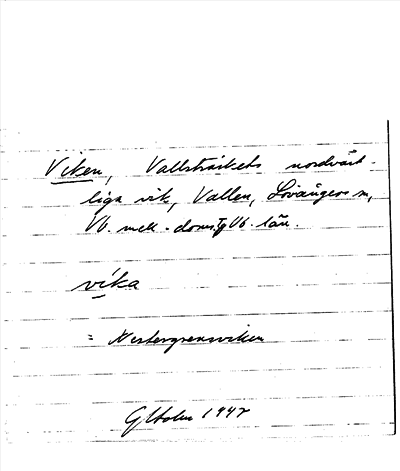 Viken, Vallsträskets nordväst-
liga vik, Vallen, Lövångers sn,
Vb. mell. doms. Vb. län.
vika
= Westergrensviken
G Holm 1947